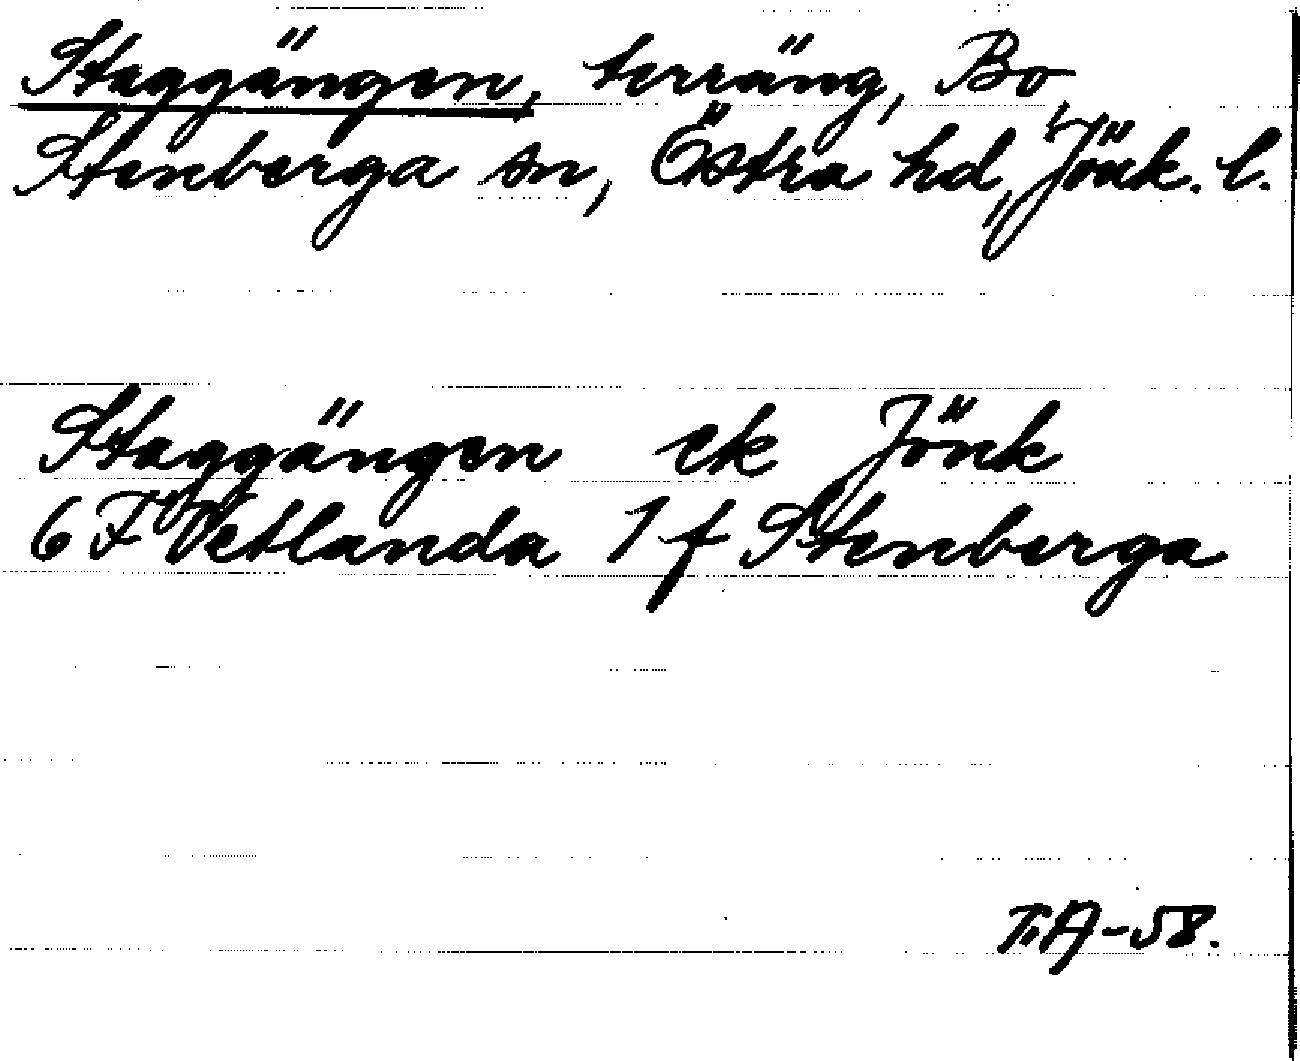 Staggängen, terräng, Bo
Stenberga sn, Östra hd, Jönk. l.
Staggängen ek Jönk
6 F Vetlanda 1 f Stenberga
T.A-58.